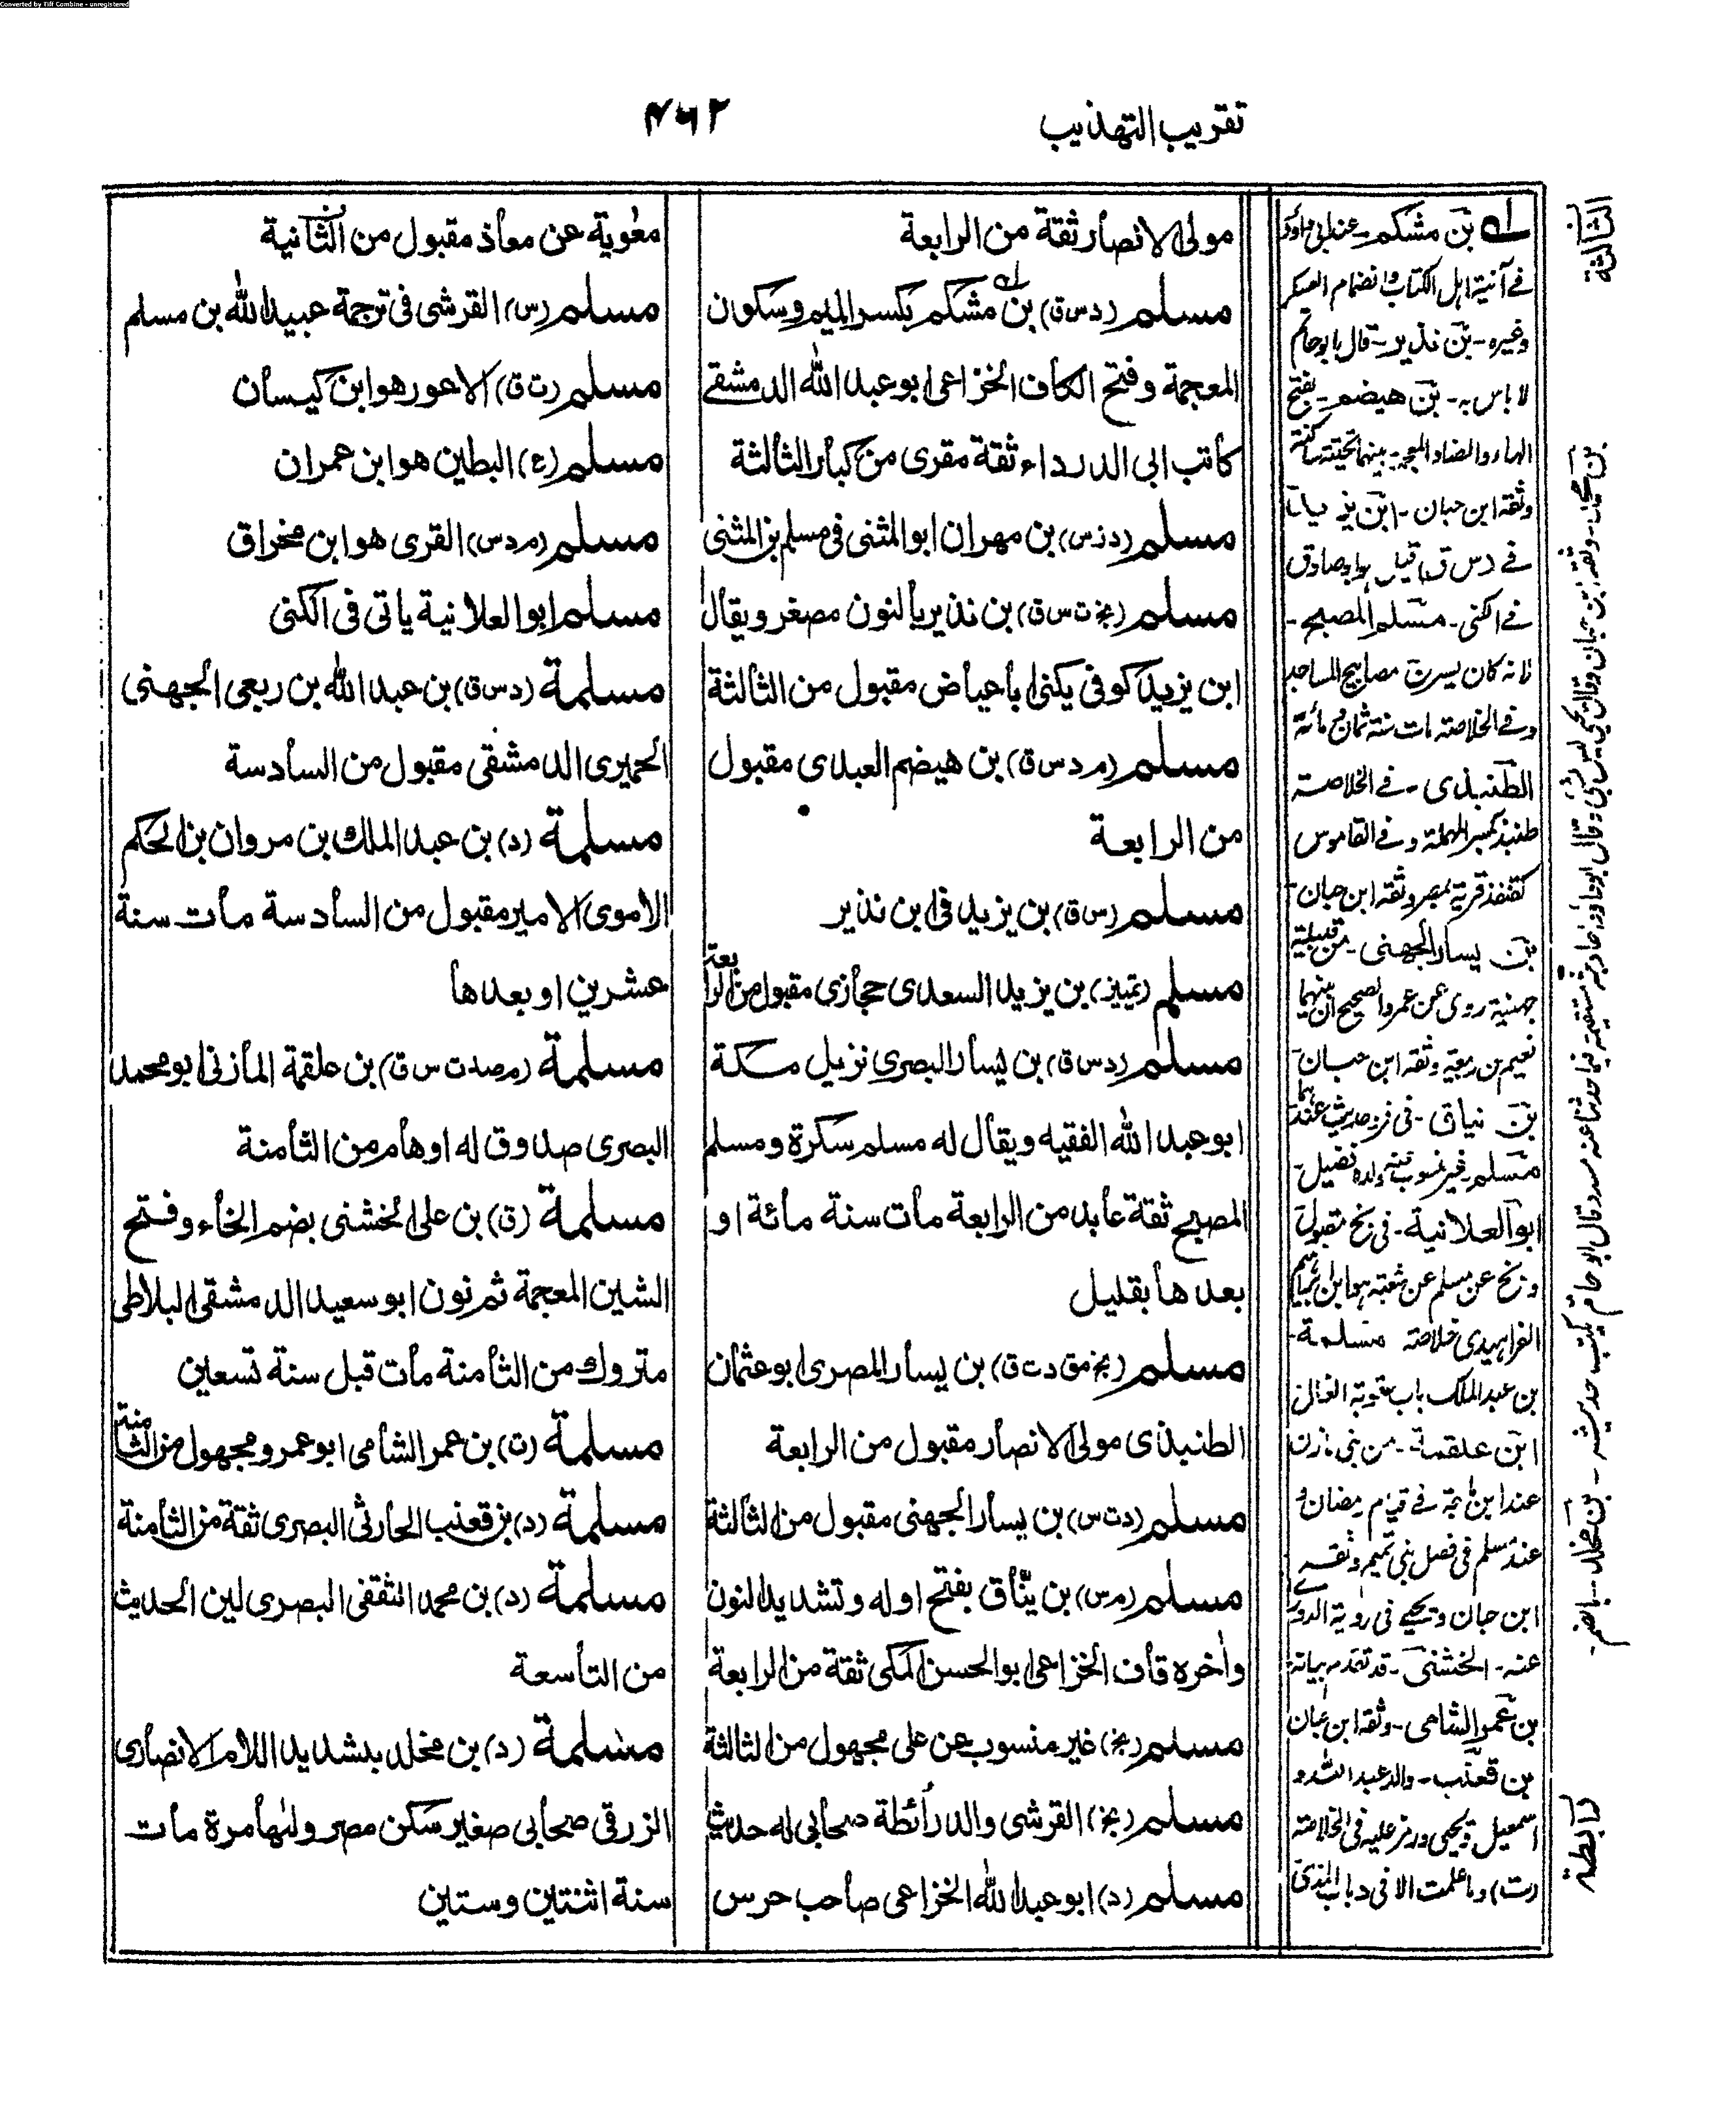 Converted by Tiff Combine - unregistered
تقريب التهذيب
۴۶۲
مولى الانصار ثقة من الرابعة
مسلم (د س ق) بن مشكم بكسر الميم وسكون
المعجمة وفتح الكاف الخزاعى ابو عبد الله الدمشقے
كاتب ابى الدرداء ثقة مقرى من كبار الثالثة
مسلم (د ز س) بن مهران ابو المثنى فى مسلم بن المثنى
مسلم (بخ ت س ق) بن نذير بالنون مصغر ويقال
ابن يزيد كوفى يكنى ابا عياض مقبول من الثالثة
مسلم (م د س ق) بن هيضم العبدى مقبول
من الرابعة
مسلم (س ق) بن يزيد فى ابن نذير
مسلم (تمييز) بن يزيد السعدى حجازى مقبول من الرابعة
مسلم (د س ق) بن يسار البصرى نزيل مكة
ابو عبد الله الفقيه ويقال له مسلم سكرة ومسلم
المصبح ثقة عابد من الرابعة مات سنة مائة او
بعدها بقليل
مسلم (بخ مق د ت ق) بن يسار المصرى ابو عثمان
الطنبذى مولى الانصار مقبول من الرابعة
مسلم (د ت س) بن يسار الجهنى مقبول من الثالثة
مسلم (م س) بن ينّاق بفتح اوله وتشديد النون
واخره قاف الخزاعى ابو الحسن المكى ثقة من الرابعة
مسلم (بخ) غير منسوب عن على مجهول من الثالثة
مسلم (بخ) القرشى والد رائطة صحابى له حديث
مسلم (د) ابو عبد الله الخزاعى صاحب حرس
معوية عن معاذ مقبول من الثانية
مسلم (س) القرشى فى ترجمة عبيد الله بن مسلم
مسلم (ت ق) الاعور هو ابن كيسان
مسلم (ع) البطين هو ابن عمران
مسلم (م د س) القرى هو ابن مخراق
مسلم ابو العلانية ياتى فى الكنى
مسلمة (د س ق) بن عبد الله بن ربعى الجهنى
الحميرى الدمشقى مقبول من السادسة
مسلمة (د) بن عبد الملك بن مروان بن الحكم
الاموى الامير مقبول من السادسة مات سنة
عشرين او بعدها
مسلمة (م صد ت س ق) بن علقمة المازنى ابو محمد
البصرى صدوق له اوهام من الثامنة
مسلمة (ق) بن على الخشنى بضم الخاء وفتح
الشين المعجمة ثم نون ابو سعيد الدمشقى البلاطى
متروك من الثامنة مات قبل سنة تسعين
مسلمة (ت) بن عمر الشامى ابو عمرو مجهول من الثامنة
مسلمة (د) بن قعنب الحارثى البصرى ثقة من الثامنة
مسلمة (د) بن محمد الثقفى البصرى لين الحديث
من التاسعة
مسلمة (د) بن مخلد بتشديد اللام الانصارى
الزرقى صحابى صغير سكن مصر وليها مرة مات
سنة اثنتين وستين
له بن مشكم - عند ابى داؤد
فے آنية اهل الكتاب وانضمام العسكر
وغيره - بن نذير - قال ابو حاتم
لا باس به - بن هيضم - بفتح
الهاء والضاد المعجمة بينهما تحتية ساكنة
وثقه ابن حبان - ابن يزيد
فے د س ق قيل هو ابو صادق
فے الكنى - مسلم المصبح -
لانه كان يسرج مصابيح المساجد
وفے الخلاصة مات سنة ثمان ومائة
الطنبذى - فے الخلاصة
طنبذ بكسر المهملة وفے القاموس
كقنفذ قرية بمصر وثقه ابن حبان -
بن يسار الجهنى - من قبيلة
جهنية روى عن عمر والصحيح ان بينهما
نعيم بن ربيعة وثقه ابن حبان
بن نياق - فى فرد حديث عندهما
مسلم - غير منسوب
ابو العلانية - فى بخ مقبول
وبخ عن مسلم عن شعبة هو ابن ابراهيم
الفراهيدى خلاصة مسلمة -
بن عبد الملك باب عقوبة الغال
ابن علقمة - من بنى مازن
عند ابن ماجة فے قيام رمضان و
عند مسلم فى فضل بنى تميم وثقه
ابن حبان ويحيے فى رواية الدورے
عنه - الخشنى - قد تقدم بيانه
بن عمر الشامى - وثقه ابن حبان
بن قعنب - والد عبد الله و
اسمعيل ويحيى ورمز عليه فى الخلاصة
(ت) وما علمت الا فى د باب المذى
الثالثة
بن محمد - وثقه ابن حبان وقال يحيى ليس بشئ وقال ابو داؤد احاديثه مستقيمة فيما حدثنا عنه مسدد قال ابو حاتم يكتب حديثه - بن مخلد - بالضم -
رابطة